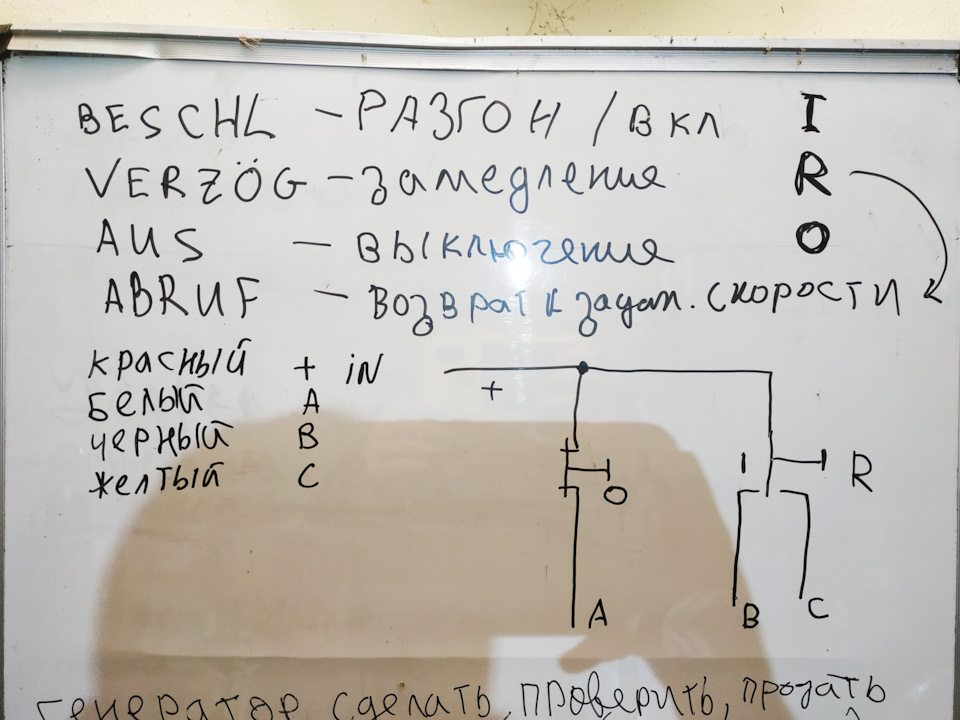 BESCHL – РАЗГОН / ВКЛ I
VERZÖG – замедление R
AUS – выключение O
ABRUF – возврат к задан. скорости
красный + iN
белый A
черный B
желтый C
+
O
I R
A B C
генератор сделать, проверить, продать